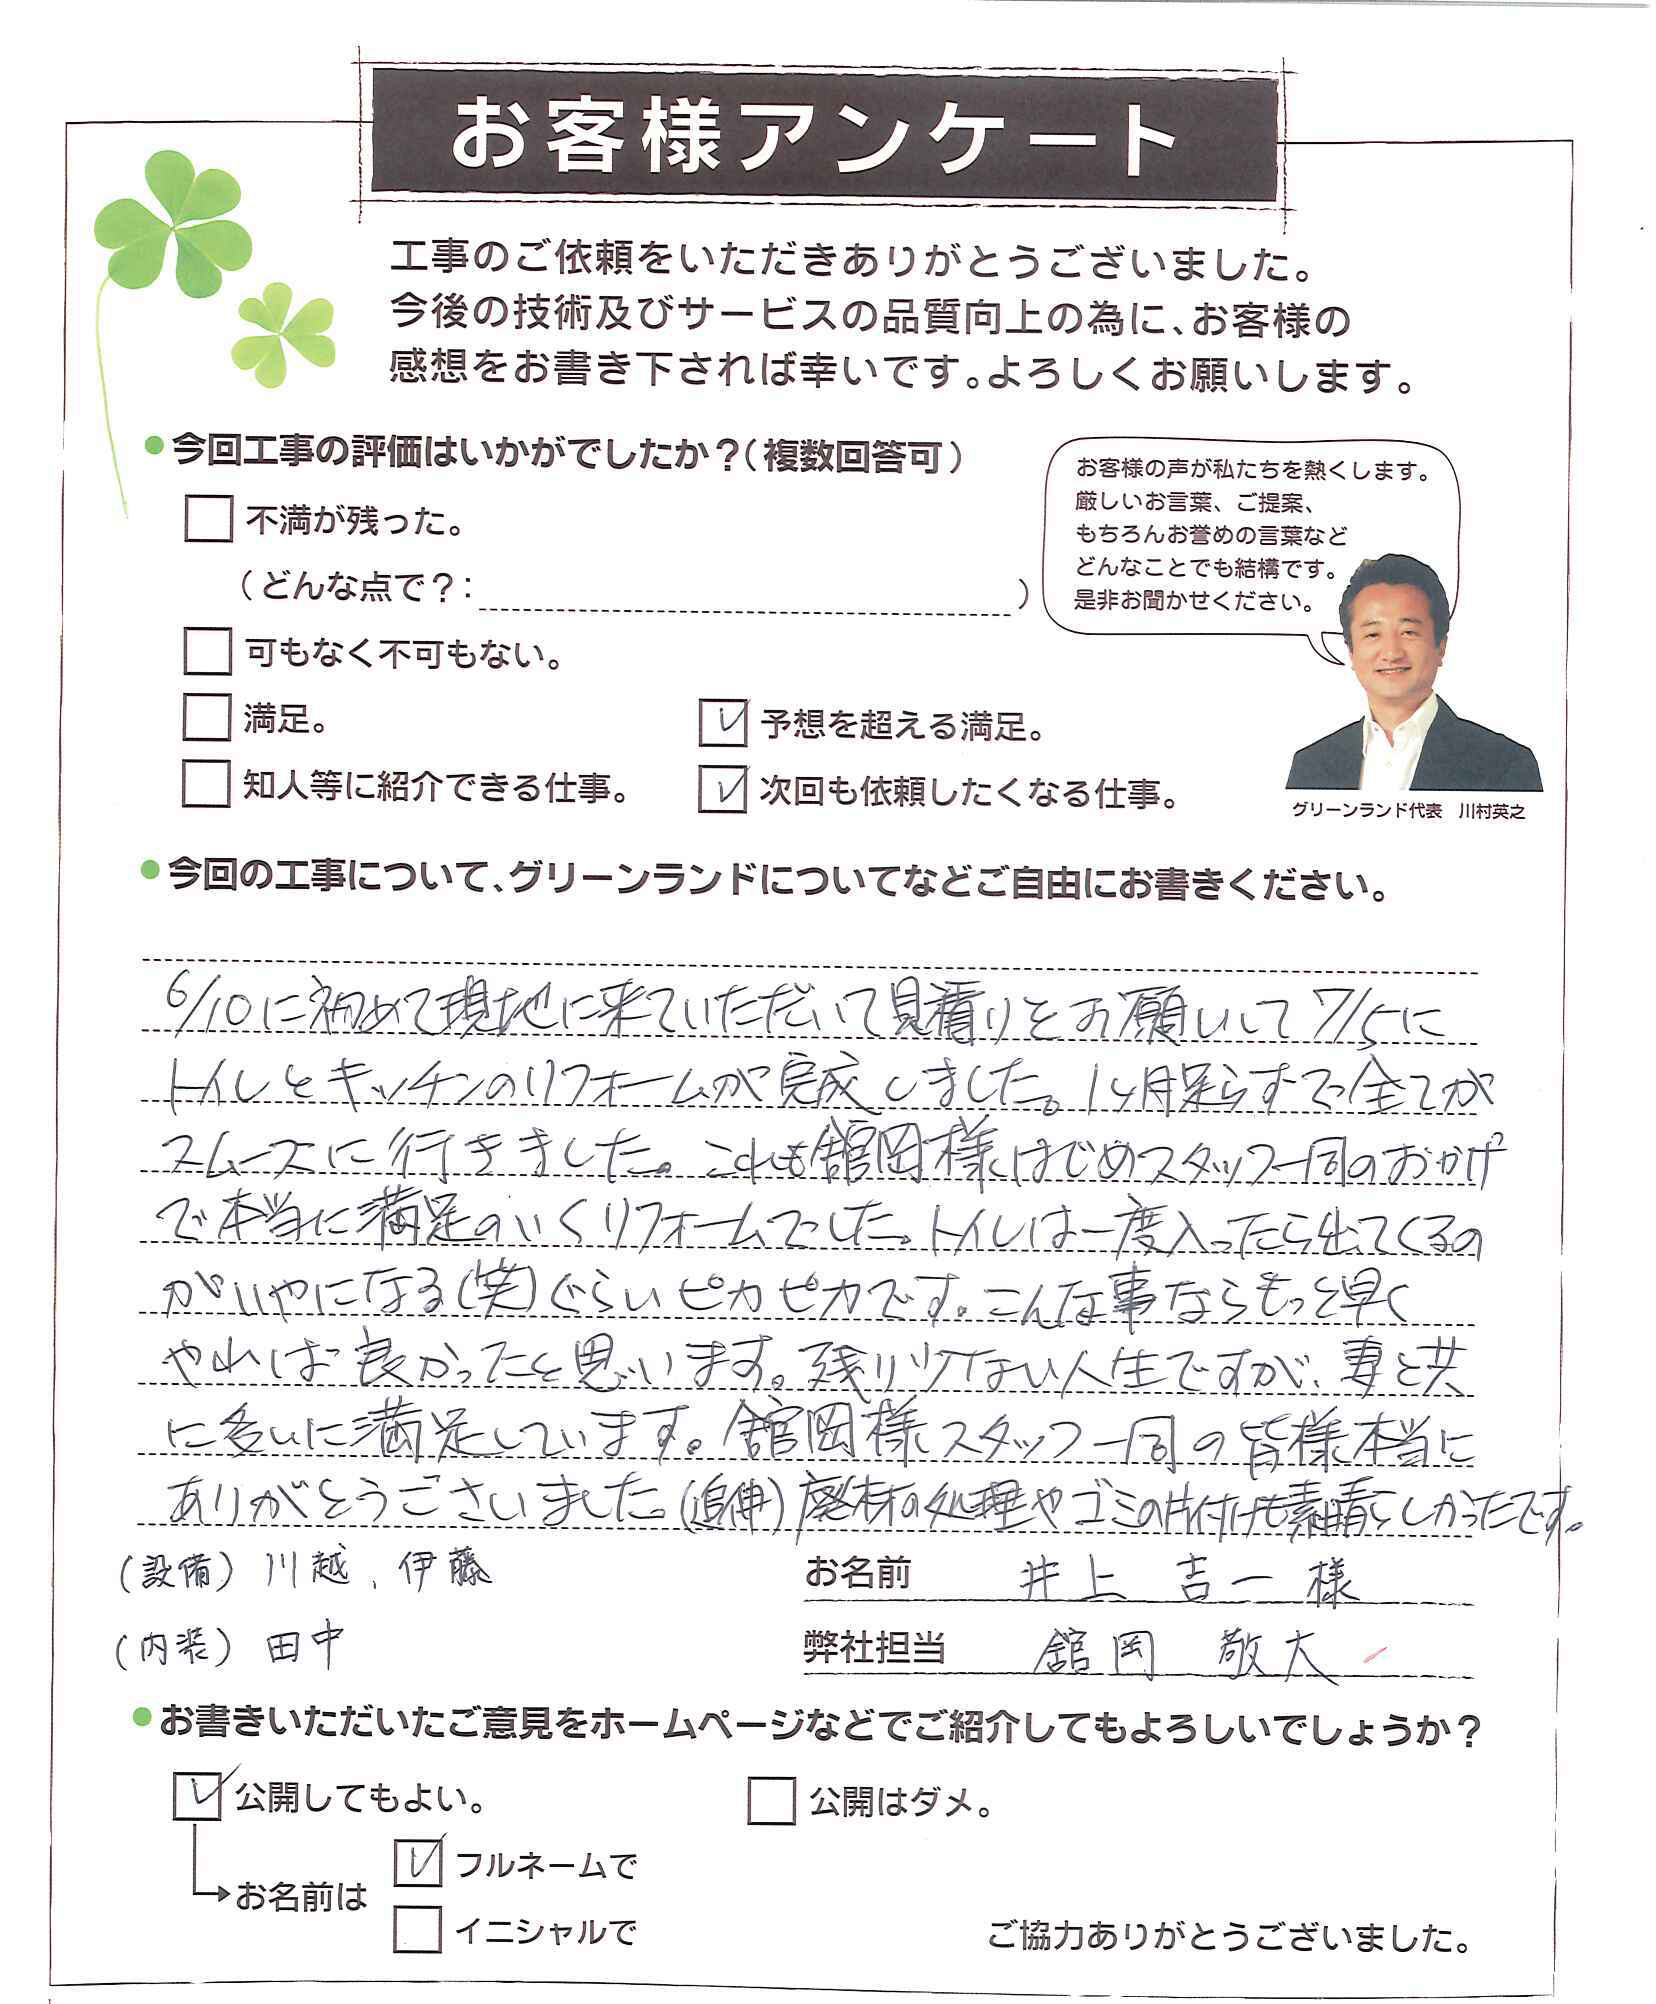 お客様アンケート
工事のご依頼をいただきありがとうございました。
今後の技術及びサービスの品質向上の為に、お客様の
感想をお書き下されば幸いです。よろしくお願いします。
●今回工事の評価はいかがでしたか？（複数回答可）
不満が残った。
（どんな点で？：　）
可もなく不可もない。
満足。
予想を超える満足。
知人等に紹介できる仕事。
次回も依頼したくなる仕事。
お客様の声が私たちを熱くします。
厳しいお言葉、ご提案、
もちろんお誉めの言葉など
どんなことでも結構です。
是非お聞かせください。
グリーンランド代表　川村英之
●今回の工事について、グリーンランドについてなどご自由にお書きください。
6/10に初めて現地に来ていただいて見積りをお願いして7/5に
トイレとキッチンのリフォームが完成しました。1ヶ月足らずで全てが
スムースに行きました。これも舘岡様はじめスタッフ一同のおかげ
で本当に満足のいくリフォームでした。トイレは一度入ったら出てくるの
がいやになる(笑)ぐらいピカピカです。こんな事ならもっと早く
やれば良かったと思います。残り少ない人生ですが、妻と共
に多いに満足しています。舘岡様スタッフ一同の皆様本当に
ありがとうございました。(追伸)廃材の処理やゴミの片付けも素晴らしかったです。
(設備) 川越、伊藤
(内装) 田中
お名前　井上 吉一 様
弊社担当　舘岡 敬大
●お書きいただいたご意見をホームページなどでご紹介してもよろしいでしょうか？
公開してもよい。
公開はダメ。
お名前は
フルネームで
イニシャルで
ご協力ありがとうございました。